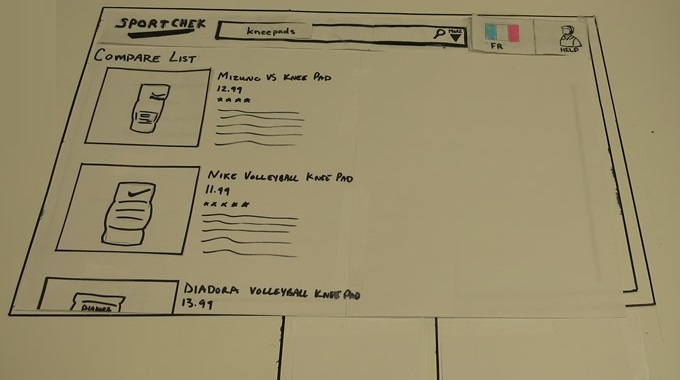 SPORTCHEK
kneepads
MORE
FR
HELP
COMPARE LIST
MIZUNO VS KNEE PAD
12.99
★★★★
NIKE VOLLEYBALL KNEE PAD
11.99
★★★★★
DIADORA VOLLEYBALL KNEE PAD
13.99
DIADORA